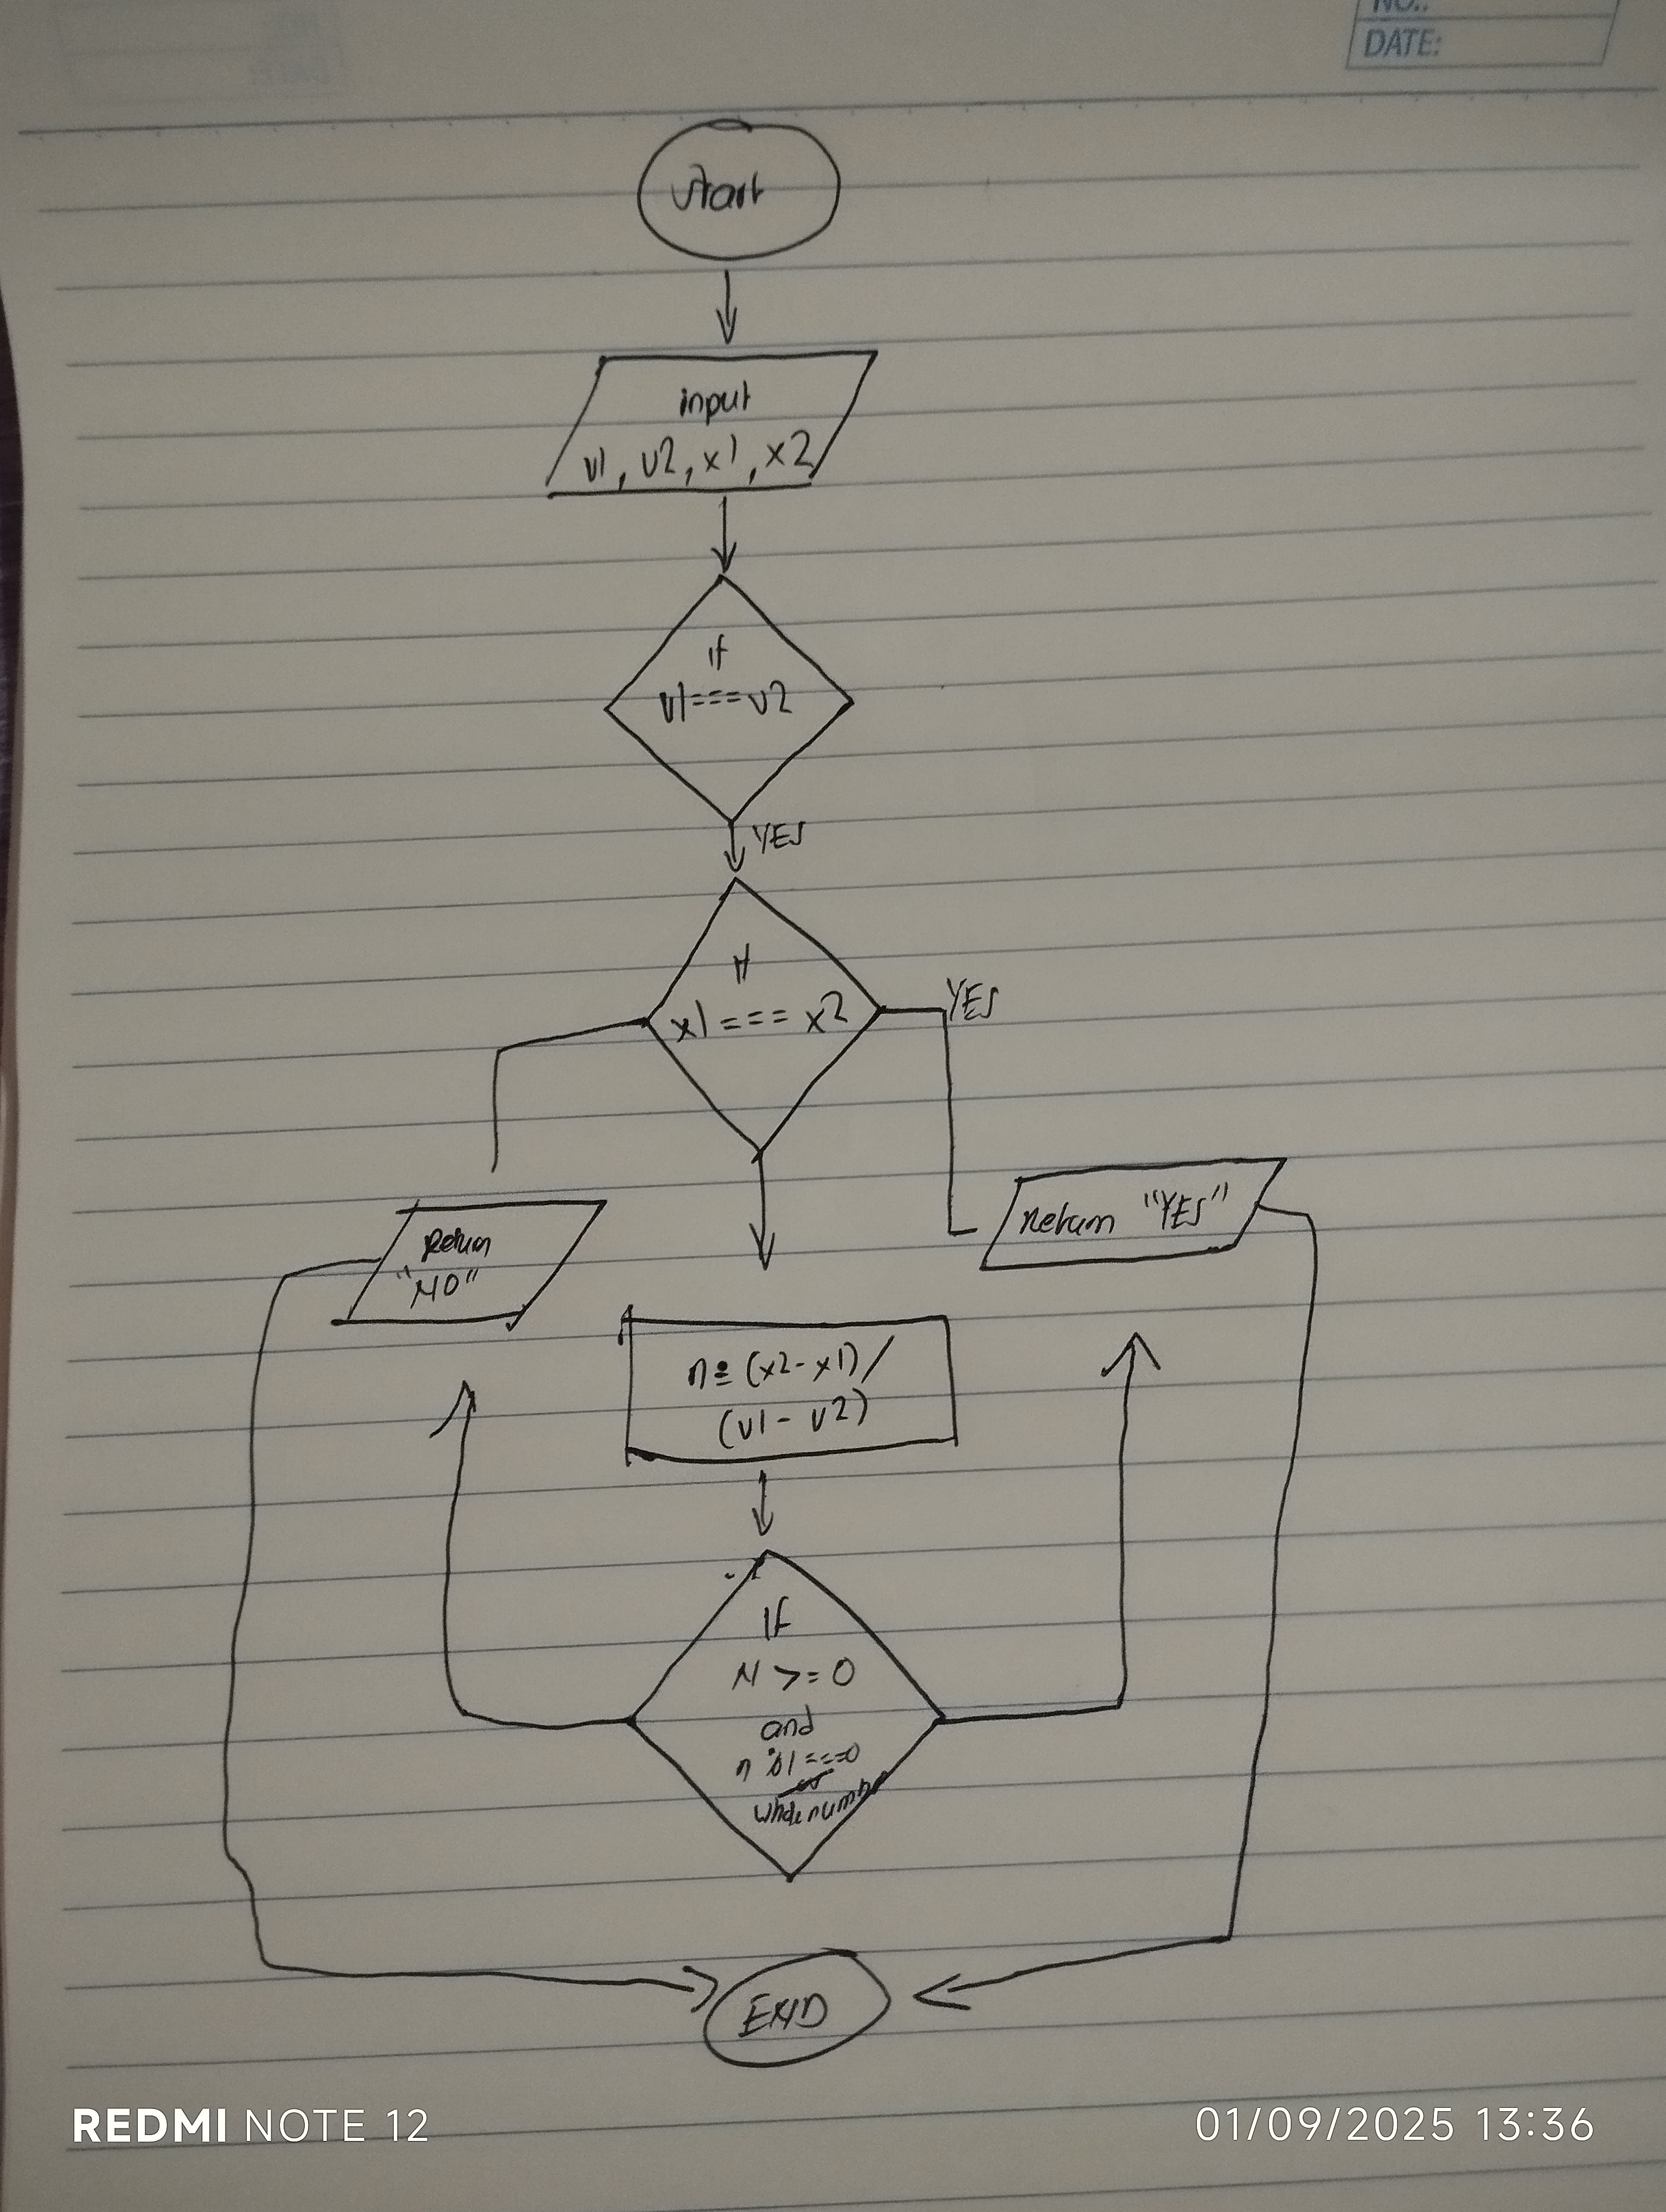 NO.:
DATE:
start
input
v1, v2, x1, x2
if
v1===v2
YES
If
x1 === x2
YES
Return "YES"
Return
"NO"
n = (x2-x1)/
(v1 - v2)
IF
N >= 0
and
n %1 ===0
or
whole number
END
REDMI NOTE 12
01/09/2025 13:36